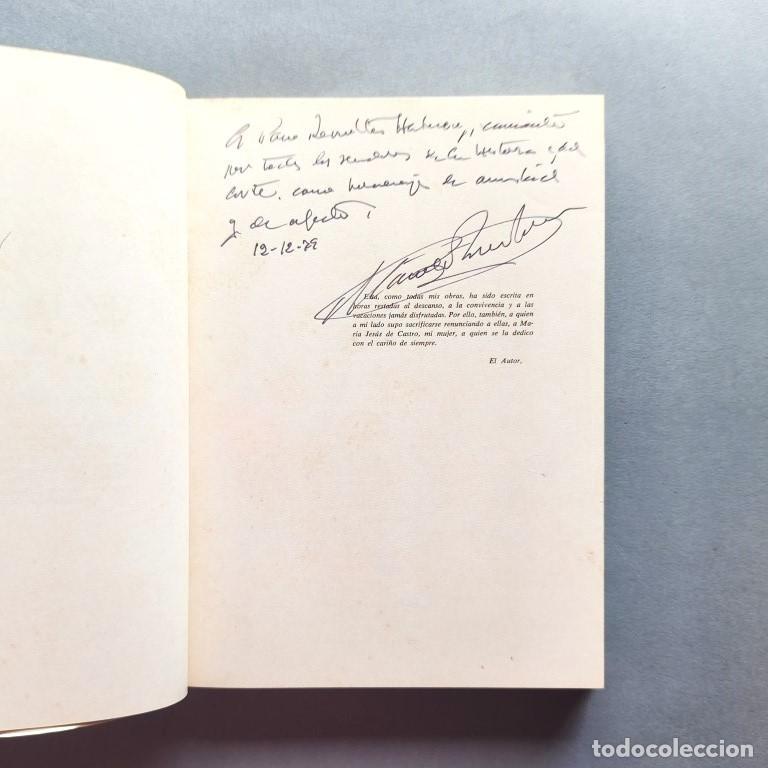 por todos los senderos de la Historia y del
Arte, como homenaje de amistad
y de afecto,
12-12-79
Esta, como todas mis obras, ha sido escrita en
horas restadas al descanso, a la convivencia y a las
vacaciones jamás disfrutadas. Por ello, también, a quien
a mi lado supo sacrificarse renunciando a ellas, a Ma-
ría Jesús de Castro, mi mujer, a quien se la dedico
con el cariño de siempre.
El Autor.
todocoleccion